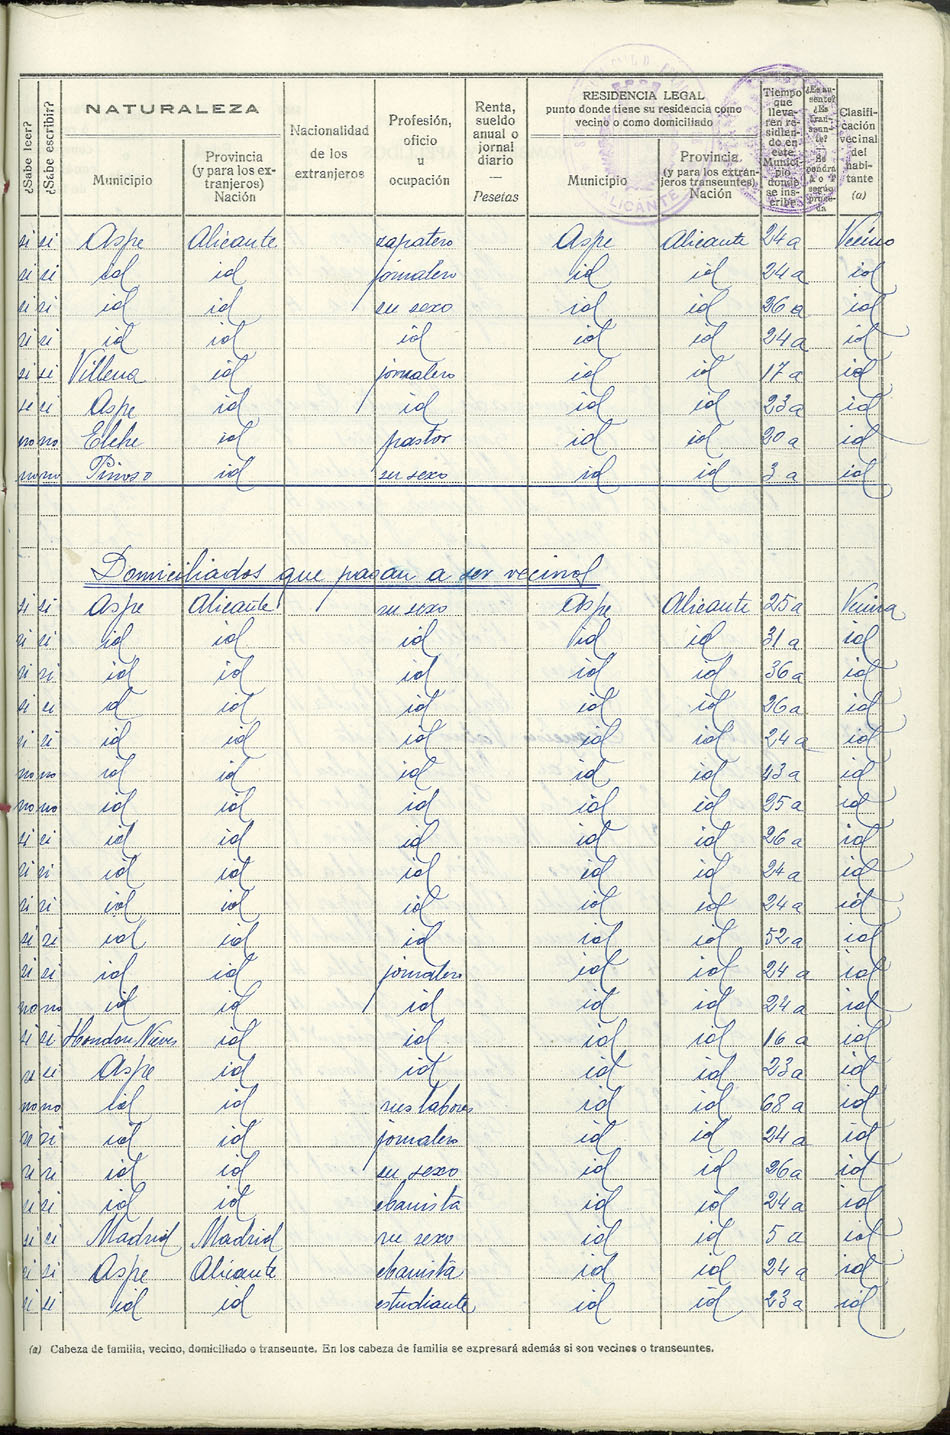 ¿Sabe leer?
¿Sabe escribir?
NATURALEZA
Municipio
Provincia
(y para los ex-
tranjeros)
Nación
Nacionalidad
de los
extranjeros
Profesión,
oficio
u
ocupación
Renta,
sueldo
anual o
jornal
diario
—
Pesetas
RESIDENCIA LEGAL
punto donde tiene su residencia como
vecino o como domiciliado
Municipio
Provincia
(y para los extran-
jeros transeuntes)
Nación
Tiempo
que
lleva-
ren re-
sidien-
do en
este
Munici-
pio
donde
se ins-
cribe
Clasifi-
cación
vecinal
del
habi-
tante
(a)
ALICANTE
si si Aspe Alicante zapatero Aspe Alicante 24 a Vecino
si si id id jornalero id id 24 a id
si si id id su sexo id id 26 a id
si si id id id id id 24 a id
si si Villena id jornalero id id 17 a id
si si Aspe id id id id 23 a id
no no Elche id pastor id id 20 a id
no no Pinoso id su sexo id id 3 a id
Domiciliados que pasan a ser vecinos
si si Aspe Alicante su sexo Aspe Alicante 25 a Vecina
si si id id id id id 31 a id
si si id id id id id 36 a id
si si id id id id id 26 a id
si si id id id id id 24 a id
no no id id id id id 43 a id
no no id id id id id 25 a id
si si id id id id id 26 a id
si si id id id id id 24 a id
si si id id id id id 24 a id
si si id id id id id 52 a id
si si id id jornalero id id 24 a id
no no id id id id id 24 a id
si si Hondon Nieves id id id id 16 a id
si si Aspe id id id id 23 a id
no no id id sus labores id id 68 a id
si si id id jornalero id id 24 a id
si si id id su sexo id id 26 a id
si si id id ebanista id id 24 a id
si si Madrid Madrid su sexo id id 5 a id
si si Aspe Alicante ebanista id id 24 a id
si si id id estudiante id id 23 a id
(a) Cabeza de familia, vecino, domiciliado o transeunte. En los cabeza de familia se expresará además si son vecinos o transeuntes.